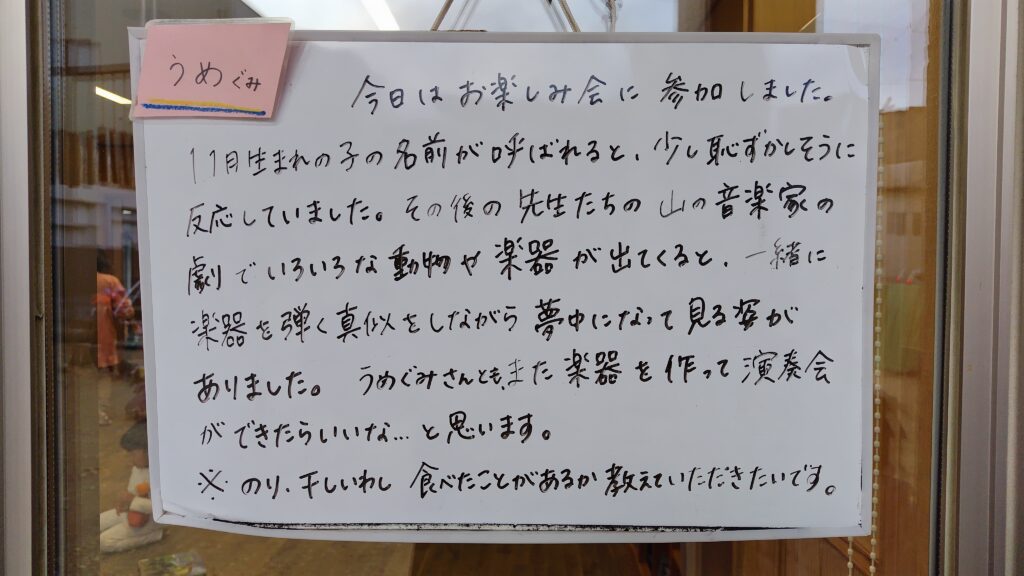 うめぐみ
今日はお楽しみ会に参加しました。
11月生まれの子の名前が呼ばれると、少し恥ずかしそうに
反応していました。その後の先生たちの山の音楽家の
劇でいろいろな動物や楽器が出てくると、一緒に
楽器を弾く真似をしながら夢中になって見る姿が
ありました。うめぐみさんとも、また楽器を作って演奏会
ができたらいいな…と思います。
※のり、干しいわし食べたことがあるか教えていただきたいです。